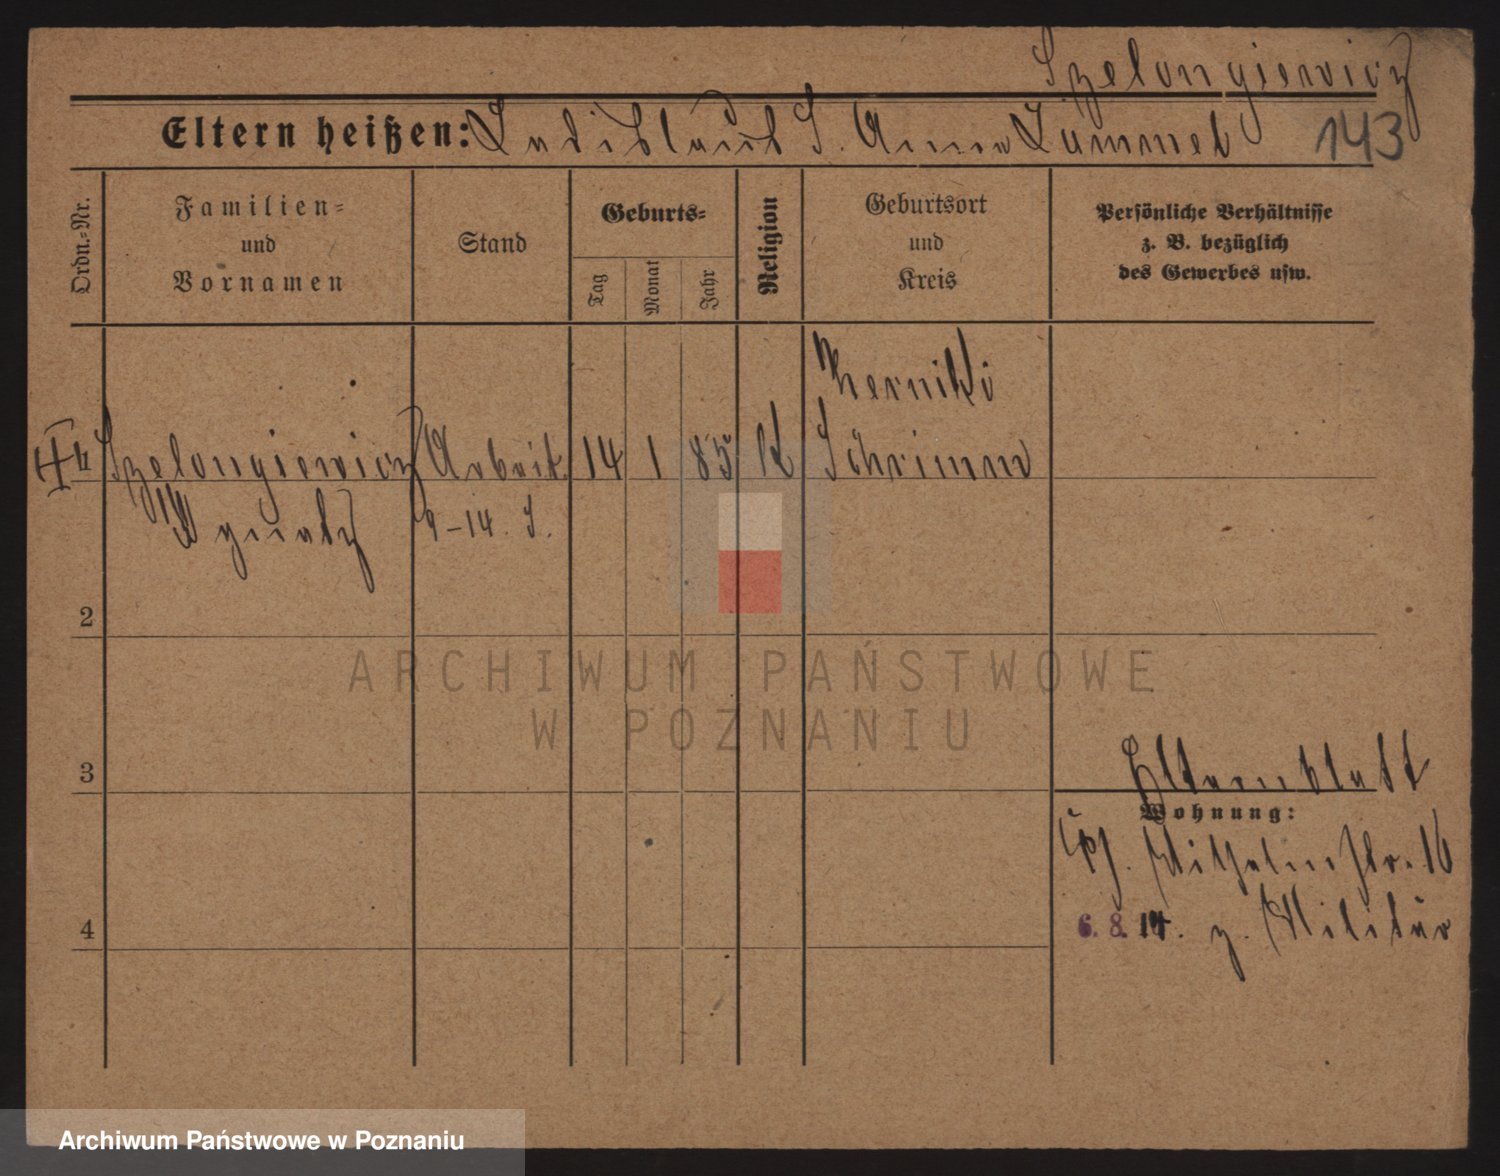 Szelongiewicz
Eltern heißen: Ladislaus S. Anna Lummel
143
Ordn.-Nr.
Familien-
und
Vornamen
Stand
Geburts-
Tag
Monat
Jahr
Religion
Geburtsort
und
Kreis
Persönliche Verhältnisse
z. B. bezüglich
des Gewerbes usw.
Szelongiewicz Arbeit. 14 1 85 K Schrimm
9-14. S.
2
3
4
Elternblatt
Wohnung:
Wilhelmstr. 16
6. 8. 14. z. Militär
ARCHIWUM PAŃSTWOWE
W POZNANIU
Archiwum Państwowe w Poznaniu